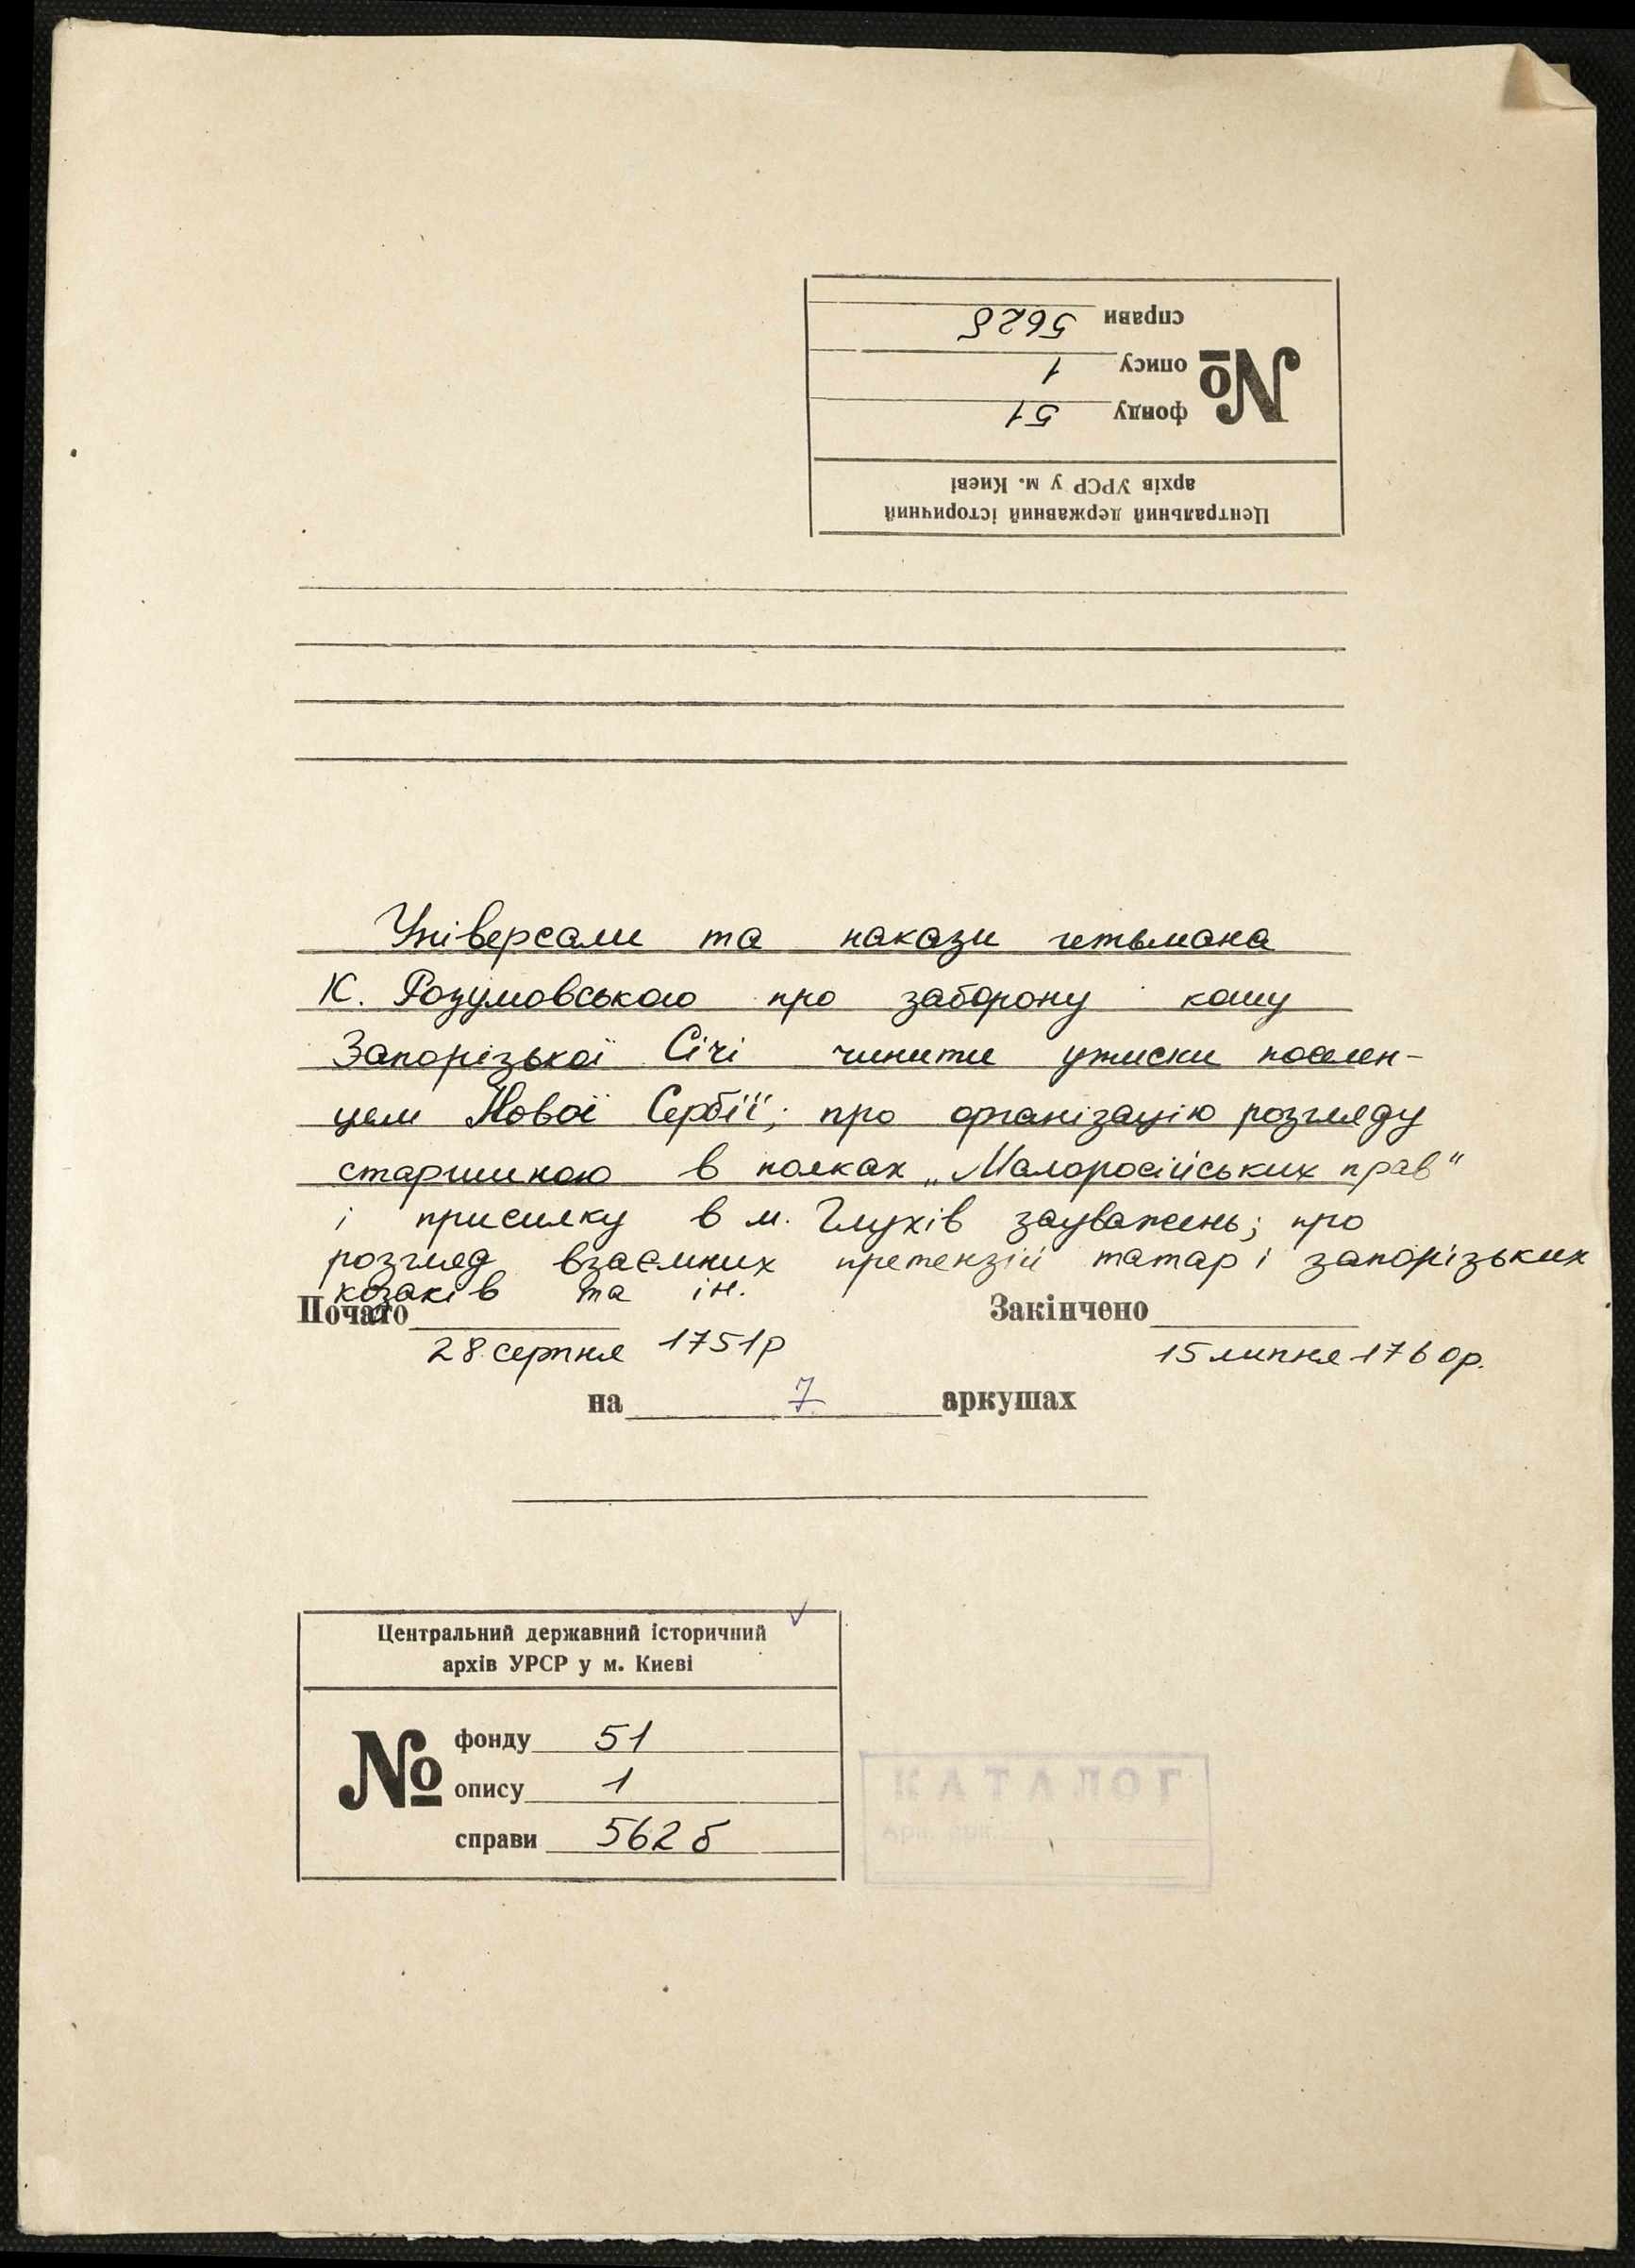 справи 562б
№ опису 1
фонду 51
Центральний державний історичний
архів УРСР у м. Києві
Універсали та накази гетьмана
К. Розумовського про заборону кошу
Запорізької Січі чинити утиски поселен-
цям Нової Сербії; про організацію розгляду
старшиною в полках „Малоросійських прав“
і присилку в м. Глухів зауважень; про
розгляд взаємних претензій татар і запорізьких
козаків та ін.
Почато 28 серпня 1751р Закінчено 15 липня 1760р.
на 7 аркушах
Центральний державний історичний
архів УРСР у м. Києві
фонду 51
№ опису 1
справи 562б
КАТАЛОГ